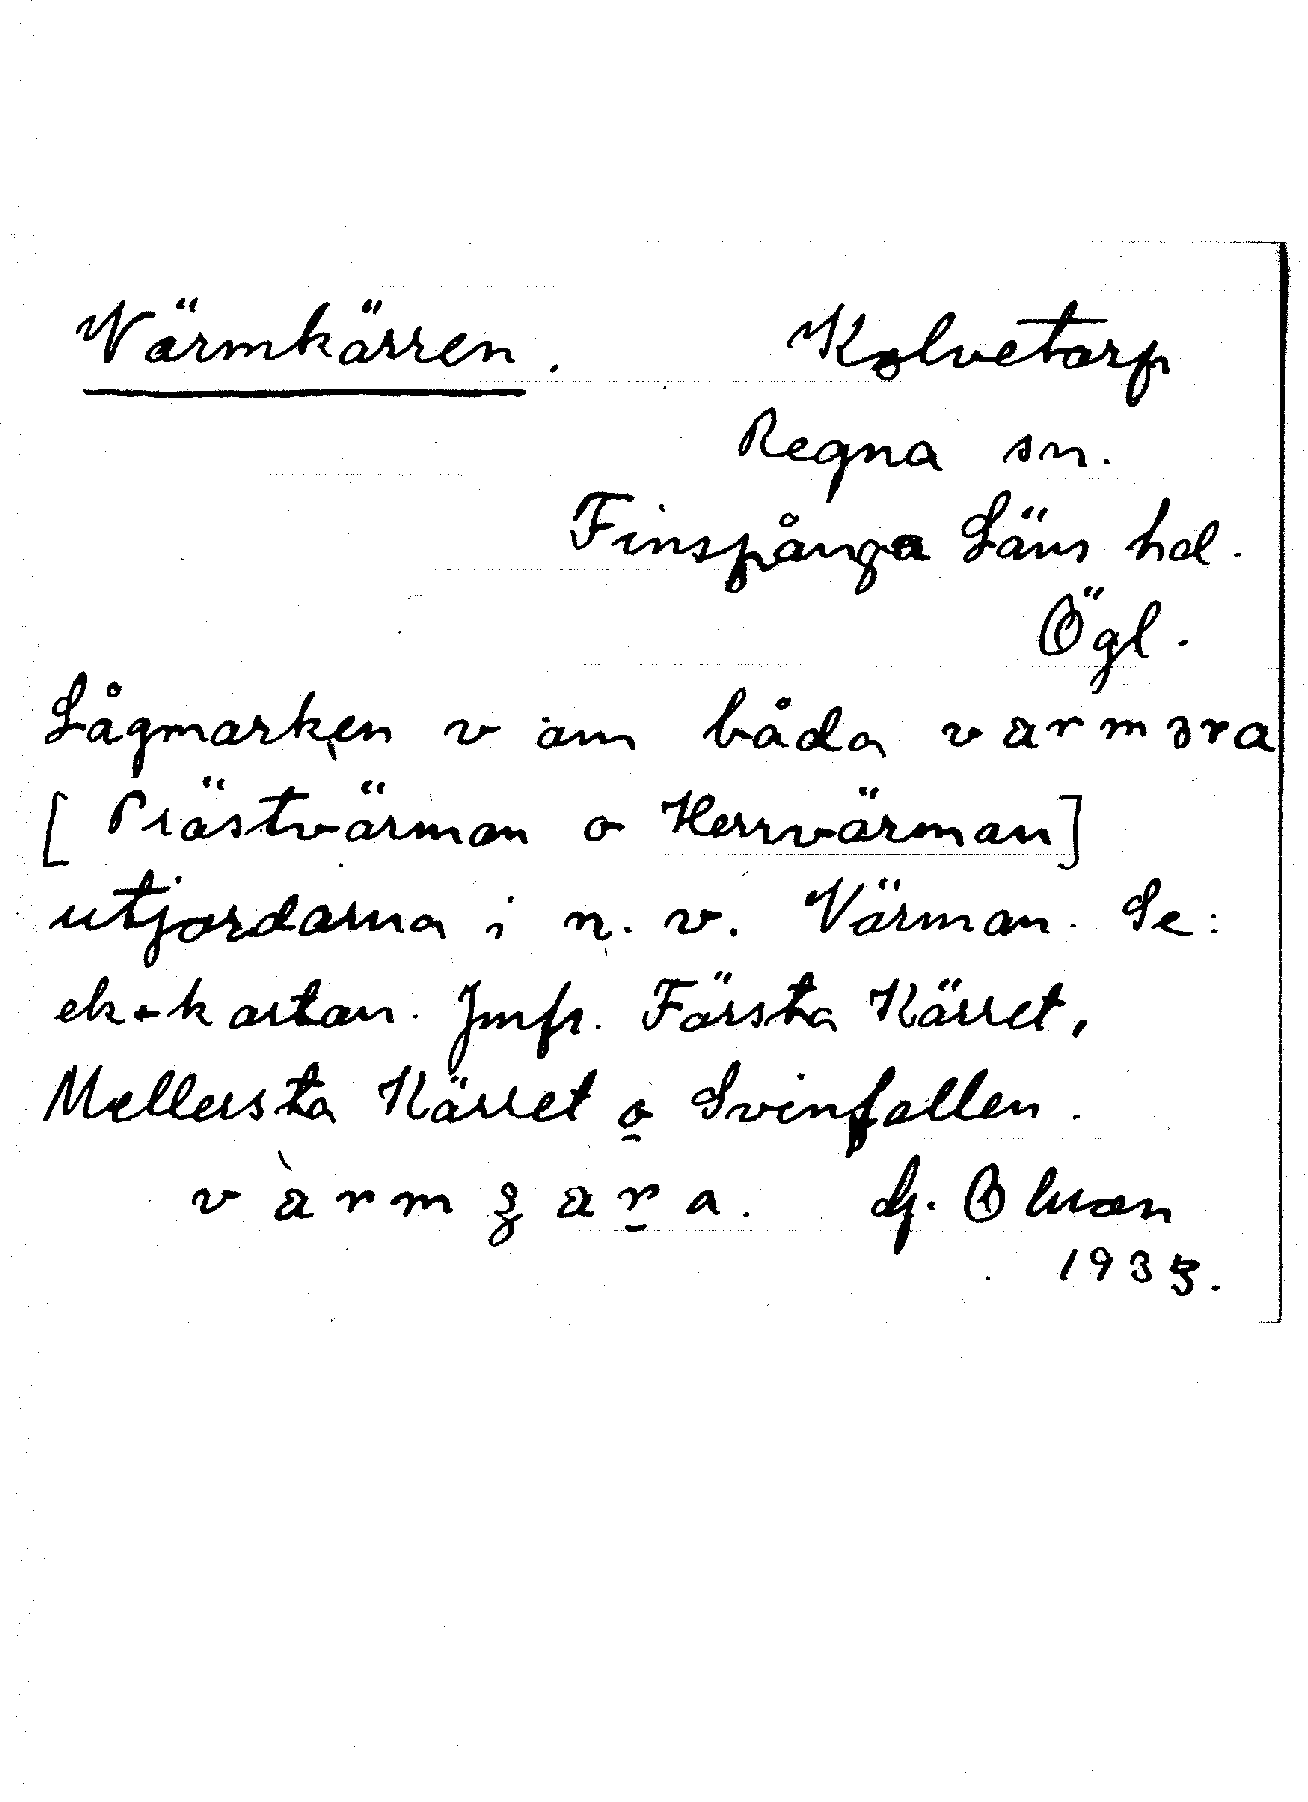 Värmkärren. Kolvetorp
Regna sn.
Finspånga Läns hd.
Ögl.
Lågmarken v om båda varmɜra
[Prästvärman o Herrvärman]
utjordarna i n. v. Värman. Se:
ek-kartan. Jmfr. Första Kärret,
Mellersta Kärret o Svinfallen.
1935.